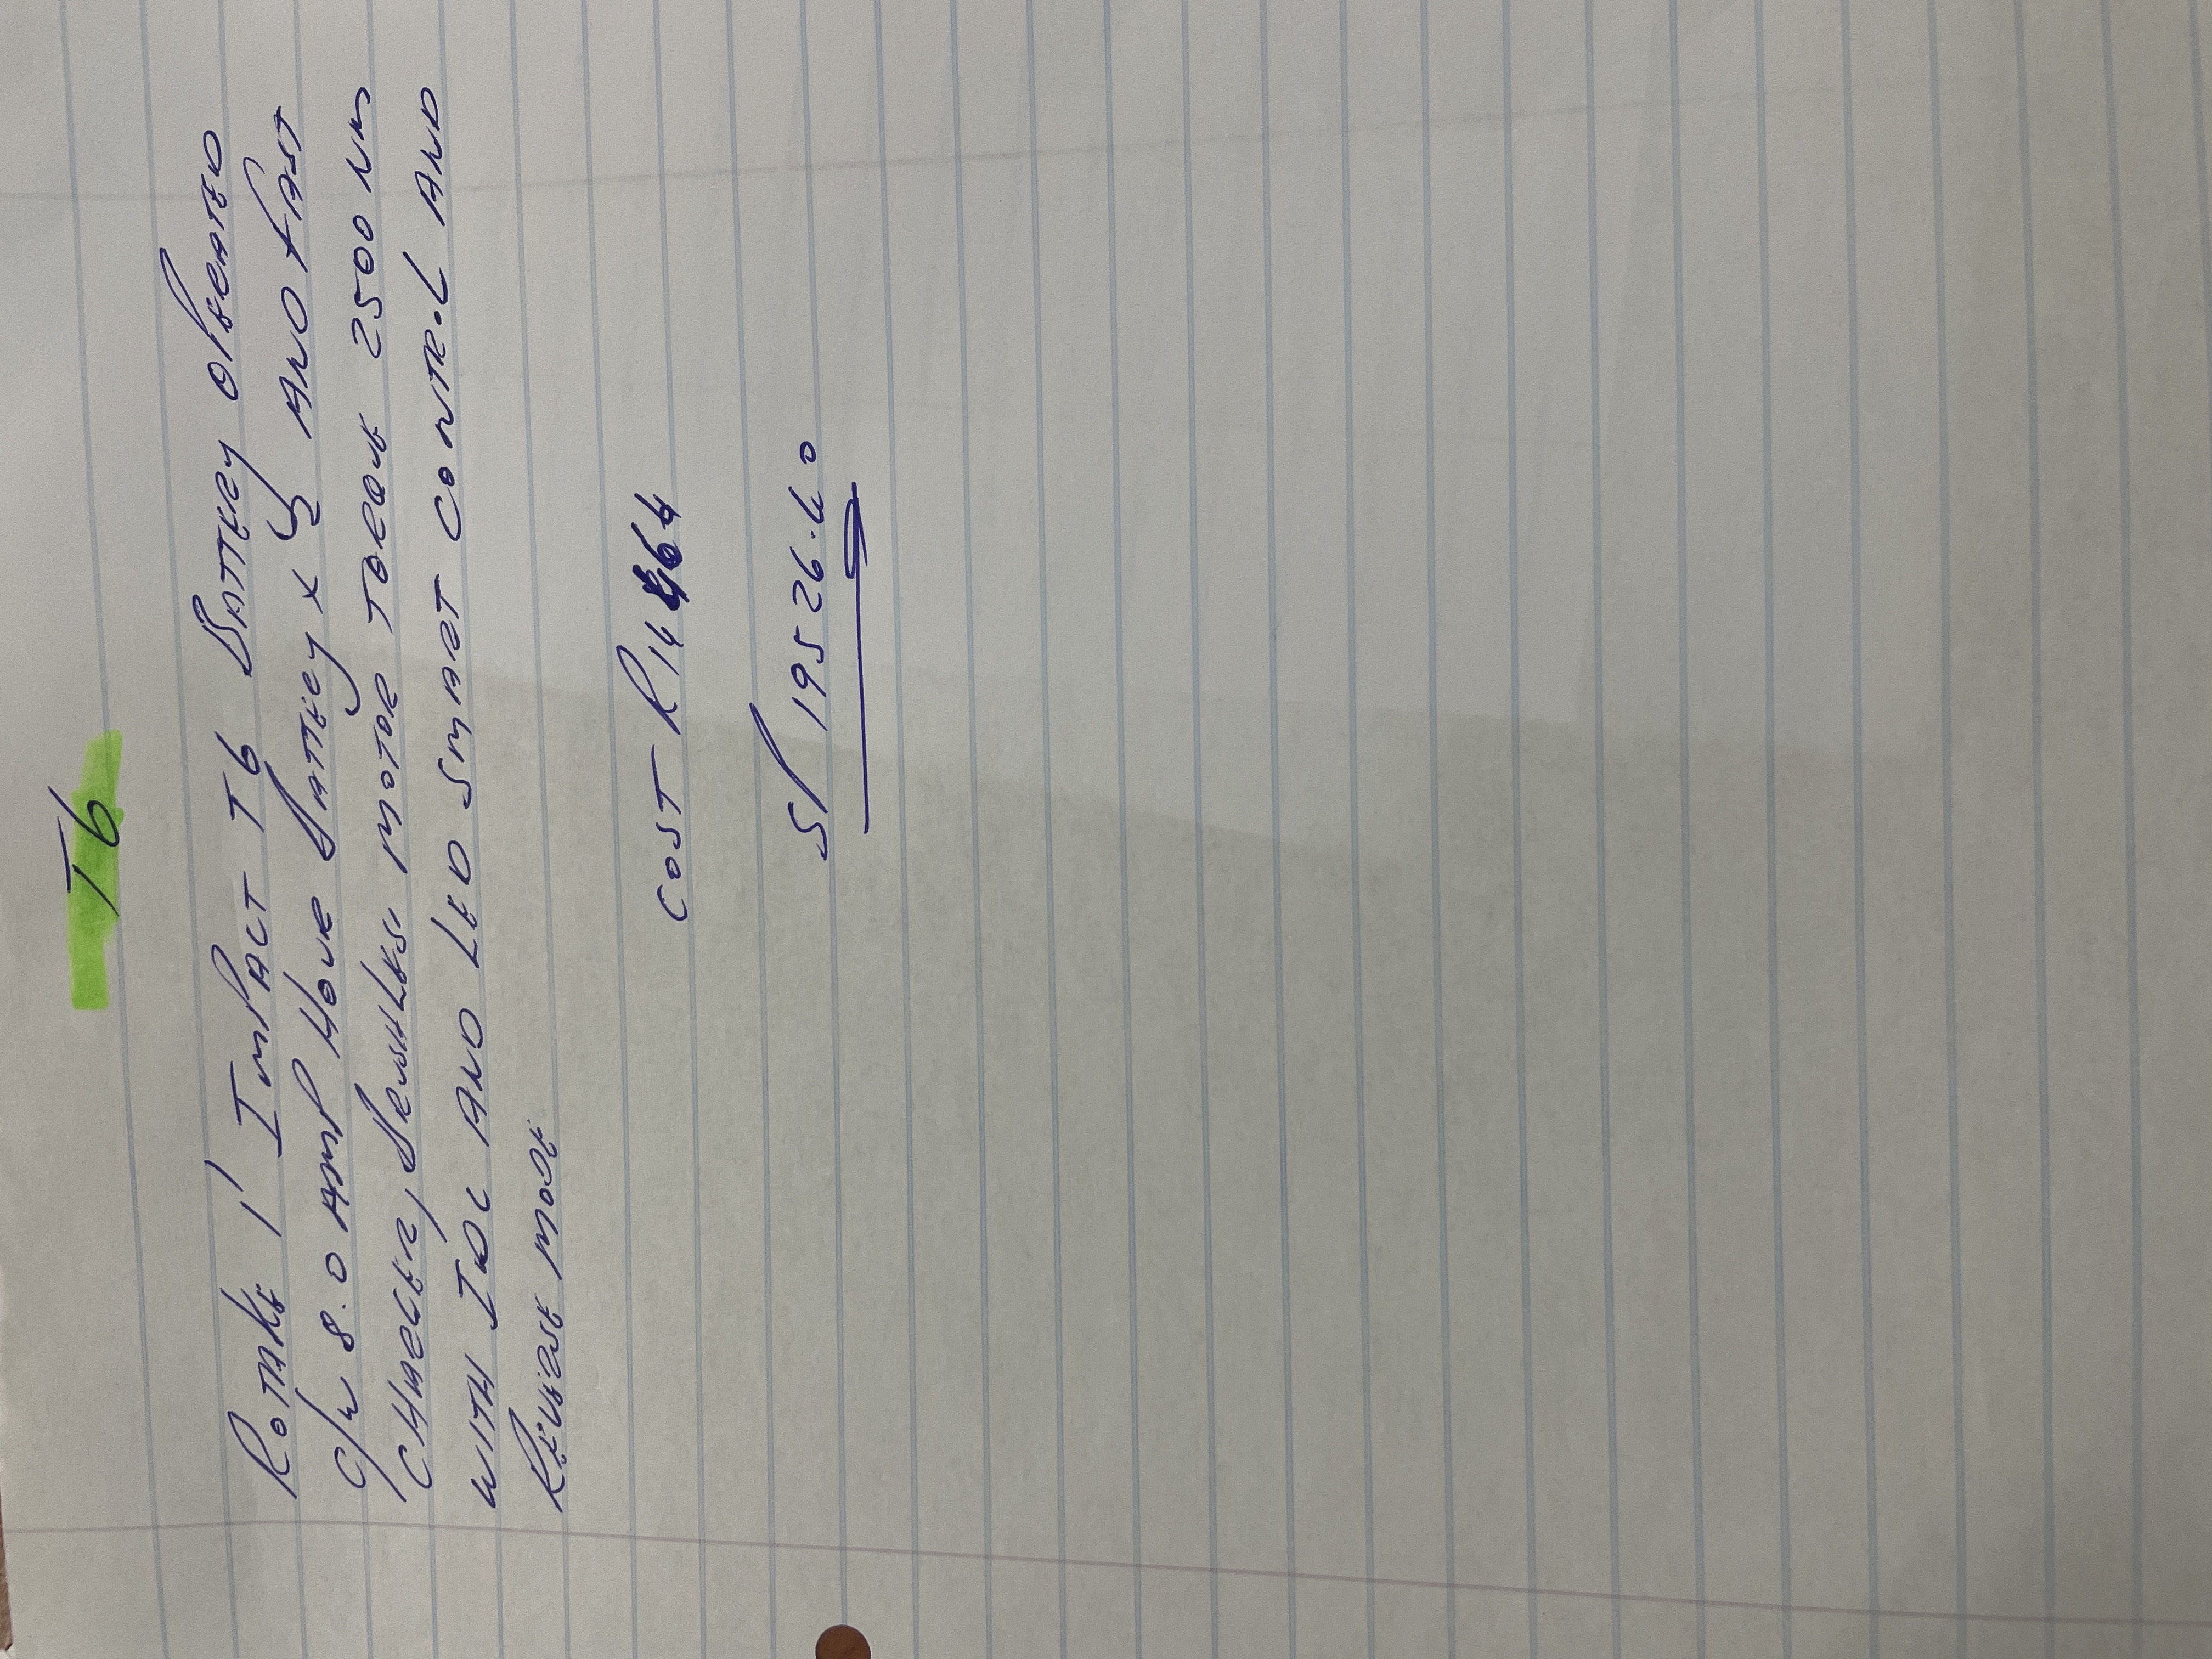 T6
ROTAKE 1' IMPACT T6 BATTERY OPERATED
C/W 8.0 AMP HOUR BATTERY X 2 AND FAST
CHARGER, BRUSHLESS MOTOR TORQUE 2500 NM
WITH IQC AND LED SMART CONTROL AND
REVERSE MODE
COST R14464
SP 19526.40